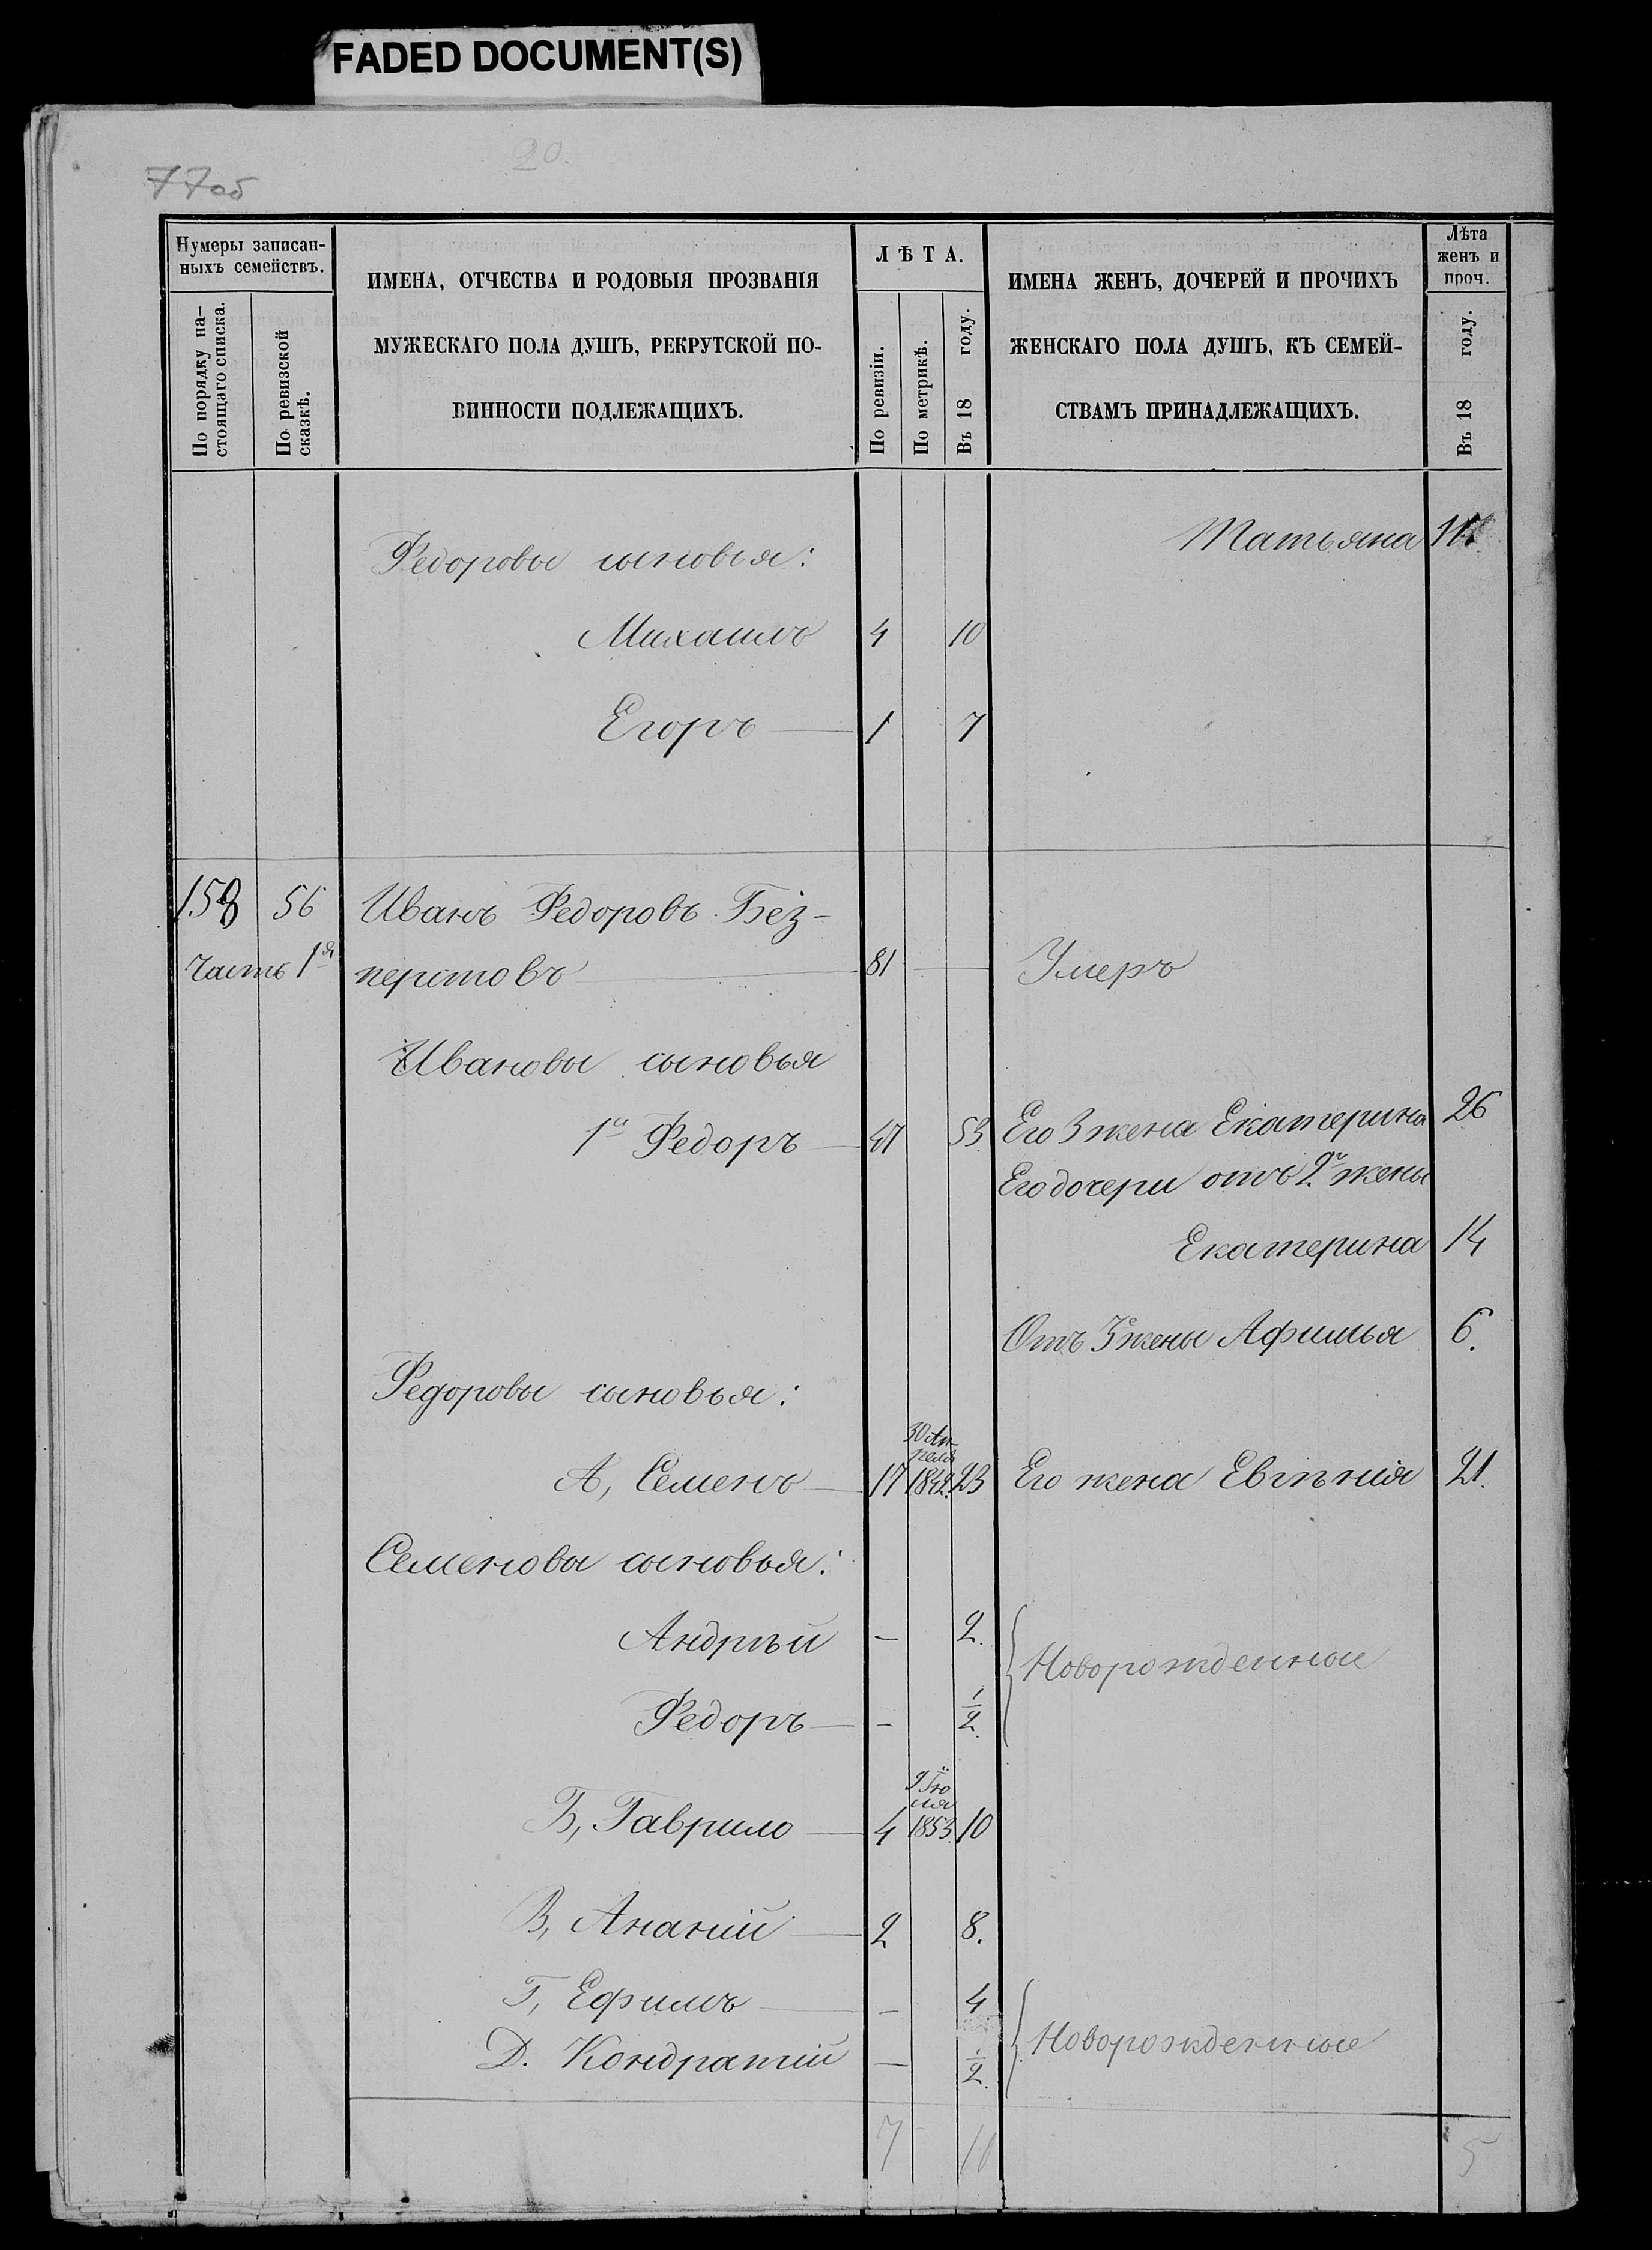 FADED DOCUMENT(S)
20.
77об
Нумеры записан-
ныхъ семействъ.
По порядку на-
стоящаго списка.
По ревизской
сказкѣ.
ИМЕНА, ОТЧЕСТВА И РОДОВЫЯ ПРОЗВАНІЯ
МУЖЕСКАГО ПОЛА ДУШЪ, РЕКРУТСКОЙ ПО-
ВИННОСТИ ПОДЛЕЖАЩИХЪ.
ЛѢТА.
По ревизіи.
По метрикѣ.
Въ 18 году.
ИМЕНА ЖЕНЪ, ДОЧЕРЕЙ И ПРОЧИХЪ
ЖЕНСКАГО ПОЛА ДУШЪ, КЪ СЕМЕЙ-
СТВАМЪ ПРИНАДЛЕЖАЩИХЪ.
Лѣта
женъ и
проч.
Въ 18 году.
Татьяна
Федоровы сыновья:
Михаилъ 4 10
Егоръ 1 7
158 56 Иванъ Федоровъ Без-
Часть 1я перстовъ 81 Умеръ
Ивановы сыновья
1й Федоръ 47 53 Его 3 жена Екатерина 26
Его дочери отъ 2й жены
Екатерина 14
Отъ 3й жены Афимья 6.
Федоровы сыновья:
30 Ап-
реля
А, Семенъ 17 1842. 23 Его жена Евгѣнія 21.
Семеновы сыновья:
Андрѣй — 2.
Новорожденные
Федоръ — 1/2.
9 Ію
ля
Б, Гаврило 4 1853. 10
В, Ананій 2 8.
Г, Ефимъ — 4
Новорожденные
Д. Кондратій — 1/2.
7 11 5